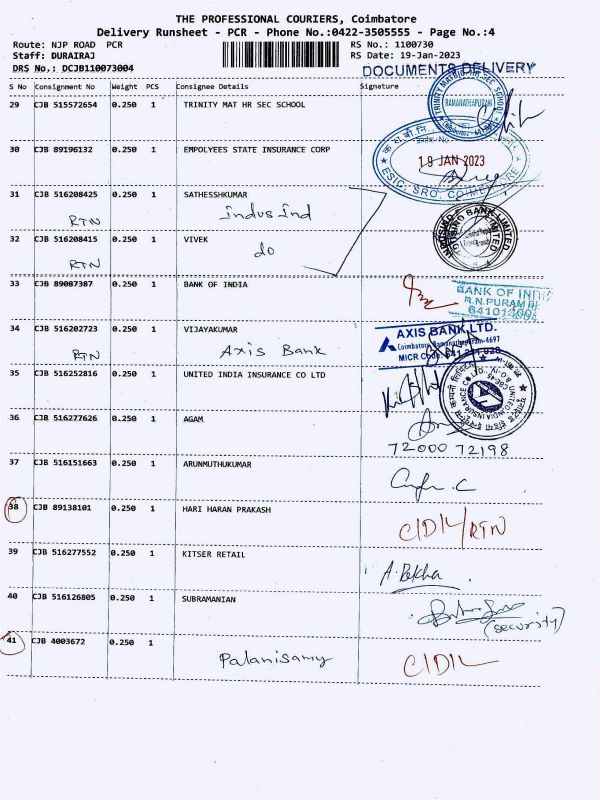 THE PROFESSIONAL COURIERS, Coimbatore
Delivery Runsheet - PCR - Phone No.:0422-3505555 - Page No.:4
Route: NJP ROAD PCR RS No.: 1100730
Staff: DURAIRAJ RS Date: 19-Jan-2023
DRS No.: DCJB110073004 DOCUMENTS DELIVERY
S No Consignment No Weight PCS Consignee Details Signature
29 CJB 515572654 0.250 1 TRINITY MAT HR SEC SCHOOL
TRINITY MATRIC HR SEC SCHOOL
RAMANATHAPURAM
30 CJB 89196132 0.250 1 EMPOLYEES STATE INSURANCE CORP
19 JAN 2023
ESIC, SRO, COIMBATORE
31 CJB 516208425 0.250 1 SATHESSHKUMAR
RTN IndusInd
INDUSIND BANK LIMITED
32 CJB 516208415 0.250 1 VIVEK
RTN do
33 CJB 89087387 0.250 1 BANK OF INDIA
BANK OF INDIA
R.N.PURAM BR
34 CJB 516202723 0.250 1 VIJAYAKUMAR
RTN Axis Bank
AXIS BANK LTD.
Coimbatore, Ramanathapuram-4697
MICR Code: 641 211 028
35 CJB 516252816 0.250 1 UNITED INDIA INSURANCE CO LTD
UNITED INDIA INSURANCE CO. LTD.
36 CJB 516277626 0.250 1 AGAM
72000 72198
37 CJB 516151663 0.250 1 ARUNMUTHUKUMAR
38 CJB 89138101 0.250 1 HARI HARAN PRAKASH
C/D/L/RTN
39 CJB 516277552 0.250 1 KITSER RETAIL
A. Rekha
40 CJB 516126805 0.250 1 SUBRAMANIAN
(security)
41 CJB 4003672 0.250 1
Palanisamy C/D/L